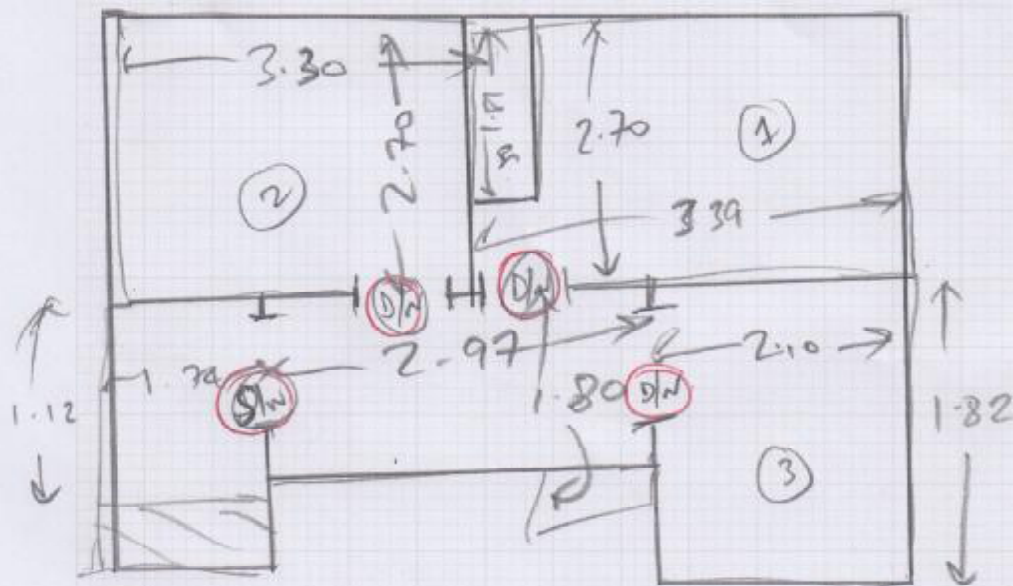 3.30
2.70
2.70
1
2
3.39
D/N
D/N
2.97
2.10
1.79
S/N
1.80
D/N
1.12
1.82
3